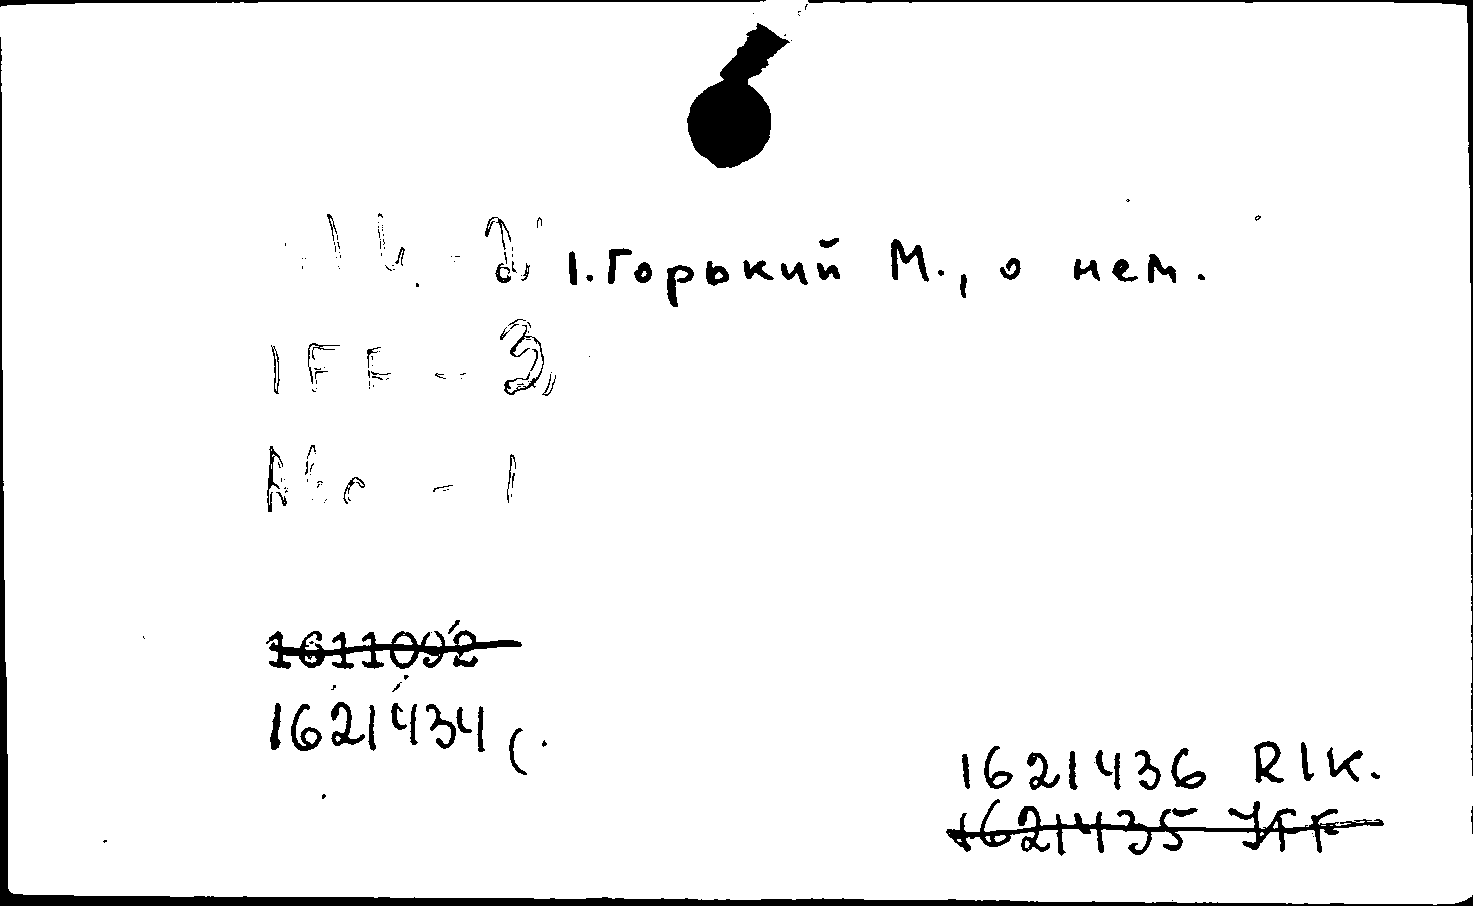 - 2,
1. Горький М., о нем.
IFF - 3,
Abo - 1
1611092
1621434
1621436 RIK.
1621435 IFF